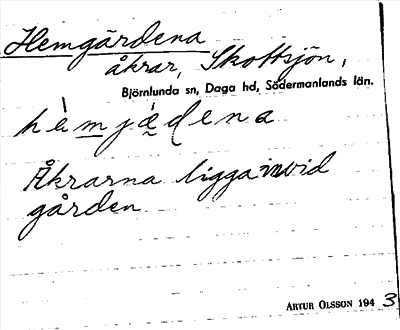 Hemgärdena
åkrar, Skottsjön,
Björnlunda sn, Daga hd, Södermanlands län.
hèmjäḍena
Åkrarna ligga invid
gården
ARTUR OLSSON 1943